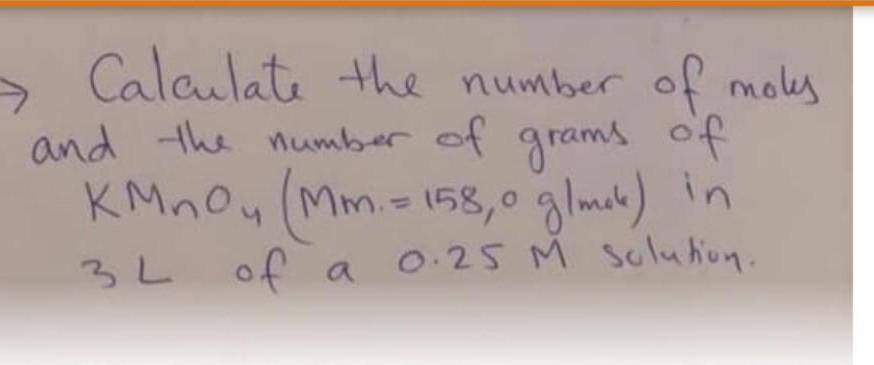 → Calculate the number of moles
and the number of grams of
KMnO₄ (Mm. = 158,0 g/mole) in
3 L of a 0.25 M solution.